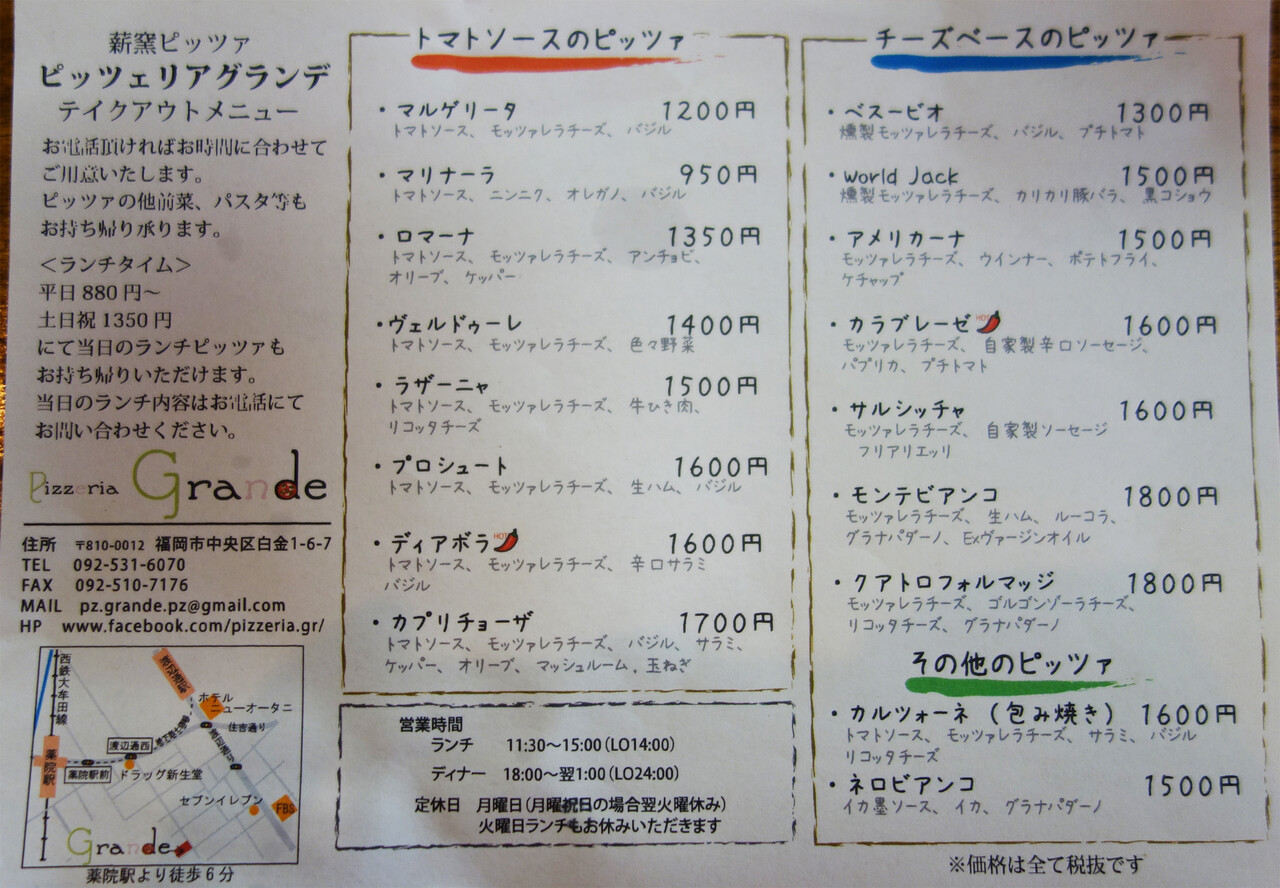 薪窯ピッツァ
ピッツェリアグランデ
テイクアウトメニュー
お電話頂ければお時間に合わせて
ご用意いたします。
ピッツァの他前菜、パスタ等も
お持ち帰り承ります。
＜ランチタイム＞
平日 880 円～
土日祝 1350 円
にて当日のランチピッツァも
お持ち帰りいただけます。
当日のランチ内容はお電話にて
お問い合わせください。
Pizzeria Grande
住所 〒810-0012 福岡市中央区白金1-6-7
TEL 092-531-6070
FAX 092-510-7176
MAIL pz.grande.pz@gmail.com
HP www.facebook.com/pizzeria.gr/
西鉄大牟田線
ホテル
ニューオータニ
住吉通り
渡辺通西
薬院駅
薬院駅前
ドラッグ新生堂
セブンイレブン
FBS
Grande
薬院駅より徒歩6分
トマトソースのピッツァ
・マルゲリータ 1200円
トマトソース、モッツァレラチーズ、バジル
・マリナーラ 950円
トマトソース、ニンニク、オレガノ、バジル
・ロマーナ 1350円
トマトソース、モッツァレラチーズ、アンチョビ、
オリーブ、ケッパー
・ヴェルドゥーレ 1400円
トマトソース、モッツァレラチーズ、色々野菜
・ラザーニャ 1500円
トマトソース、モッツァレラチーズ、牛ひき肉、
リコッタチーズ
・プロシュート 1600円
トマトソース、モッツァレラチーズ、生ハム、バジル
・ディアボラ HOT 1600円
トマトソース、モッツァレラチーズ、辛口サラミ
バジル
・カプリチョーザ 1700円
トマトソース、モッツァレラチーズ、バジル、サラミ、
ケッパー、オリーブ、マッシュルーム，玉ねぎ
営業時間
ランチ 11:30～15:00（LO14:00）
ディナー 18:00～翌1:00（LO24:00）
定休日 月曜日（月曜祝日の場合翌火曜休み）
火曜日ランチもお休みいただきます
チーズベースのピッツァ
・ベスービオ 1300円
燻製モッツァレラチーズ、バジル、プチトマト
・World Jack 1500円
燻製モッツァレラチーズ、カリカリ豚バラ、黒コショウ
・アメリカーナ 1500円
モッツァレラチーズ、ウインナー、ポテトフライ、
ケチャップ
・カラブレーゼ HOT 1600円
モッツァレラチーズ、自家製辛口ソーセージ、
パプリカ、プチトマト
・サルシッチャ 1600円
モッツァレラチーズ、自家製ソーセージ
フリアリエッリ
・モンテビアンコ 1800円
モッツァレラチーズ、生ハム、ルーコラ、
グラナパダーノ、Exヴァージンオイル
・クアトロフォルマッジ 1800円
モッツァレラチーズ、ゴルゴンゾーラチーズ、
リコッタチーズ、グラナパダーノ
その他のピッツァ
・カルツォーネ（包み焼き） 1600円
トマトソース、モッツァレラチーズ、サラミ、バジル
リコッタチーズ
・ネロビアンコ 1500円
イカ墨ソース、イカ、グラナパダーノ
※価格は全て税抜です